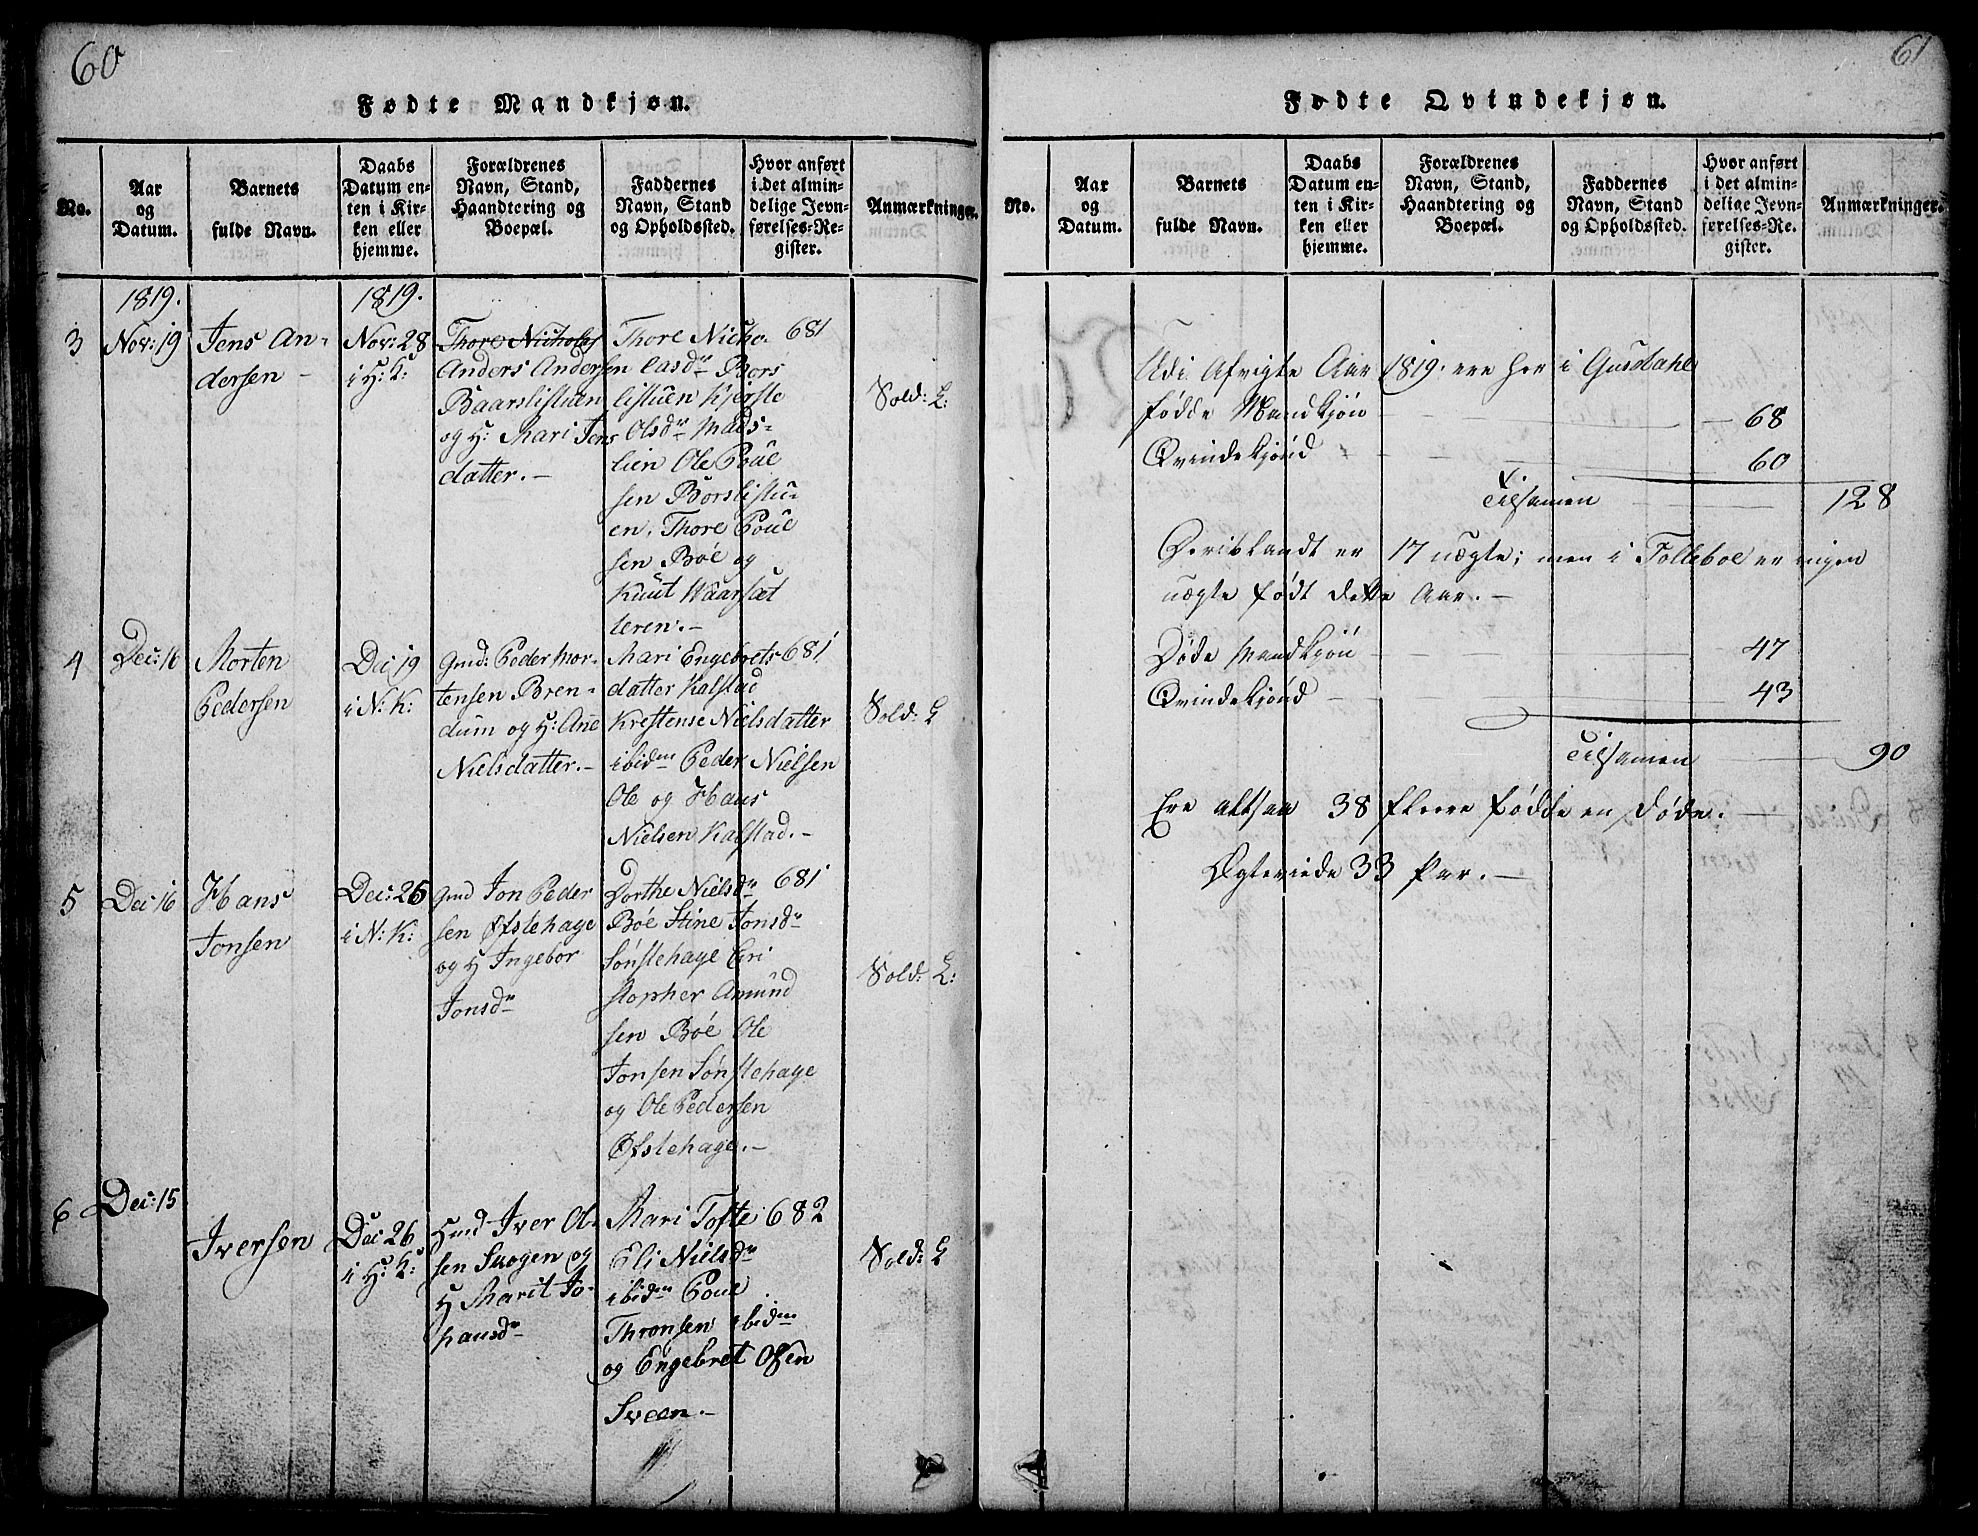 60
Fødte Mandkjøn.
No.
Aar
og
Datum.
Barnets
fulde Navn.
Daabs
Datum en-
ten i Kir-
ken eller
hjemme.
Forældrenes
Navn, Stand,
Haandtering og
Boepæl.
Faddernes
Navn, Stand
og Opholdssted.
Hvor anført
i det almin-
delige Jevn-
førelses-Re-
gister.
Anmærkninger.
1819.
1819.
3
Nov: 19
Jens An-
dersen -
Nov: 28
i H: K:
Thore Nicholas
Anders Andersen
Baarslistuen
og H: Mari Jens
datter. -
Thore Nicho-
lasdr Bors
listuen Kjerste
Olsdr Mads-
lien Ole Poul
sen Borslistu-
en, Thore Poul
sen Bøe og
Knut Kaarsæt
teren. -
681
Sold: L:
4
Dec: 16
Morten
Pedersen
Dec 19
i N: K:
Gmd: Peder Mor-
tensen Bren-
dum og H: Ane
Nielsdatter. -
Mari Engebrets
datter Kalstad
Krestense Nielsdatter
ibidm Peder Nielsen
Ole og Hans
Nielsen Kalstad. -
681
Sold: L
5
Dec: 16
Hans
Jonsen
Dec: 26
i N: K:
Gmd Jon Peder
sen Øfslehage
og H Ingebor
Jonsdr
Dorthe Nielsdr
Bøe Stine Jonsdr
Sønstehage Cri
stopher Amund
sen Bøe Ole
Jonsen Sønstehage
og Ole Pedersen
Øfslehage. -
681
Sold: L:
6
Dec: 15
Iversen
Dec 26
i H: K:
Hmd Iver Ol-
sen Skogen og
H Marit Jo-
hansdr
Mari Tofte
Eli Nielsdr
ibidm Poul
Thronsen ibidm
og Engebret Olsen
Sveen. -
682
Sold: L
61
Fødte Qvindekjøn.
No.
Aar
og
Datum.
Barnets
fulde Navn.
Daabs
Datum en-
ten i Kir-
ken eller
hjemme.
Forældrenes
Navn, Stand,
Haandtering og
Boepæl.
Faddernes
Navn, Stand
og Opholdssted.
Hvor anført
i det almin-
delige Jevn-
førelses-Re-
gister.
Anmærkninger.
Udi Afvigte Aar 1819. ere her i Gusdahl
fødde Mandkjøn - 68
Qvindekjønd - 60
Tilsamen - 128
Deriblandt er 17 uægte; men i Folleboe er ingen
uægte født dette Aar. -
Døde Mandkjøn - 47
Qvindekjønd - 43
Tilsamen - 90
Ere altsaa 38 fleere fødde en døde. -
Ægteviede 33 Par. -